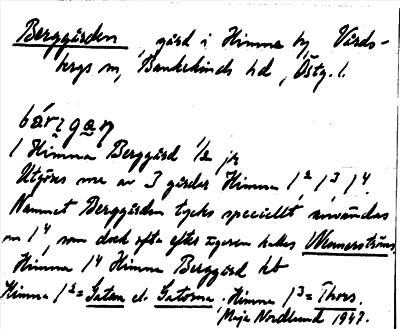 Berggården, gård i Himna by, Vårds-
bergs sn, Bankekinds hd, Östg. l.
bárjgaɳ
1 Himna Berggård 1/2 jb
Utgöres nu av 3 gårdar Himna 1² 1³ 1⁴.
Namnet Berggården tycks speciellt användas
om 1⁴, som dock ofta efter ägaren kallas Wennerströms.
Himna 1⁴ Himna Berggård kb
Himna 1² = Gatan el. Gatorna, Himna 1³ = Thors.
Maja Nordlund 1947.